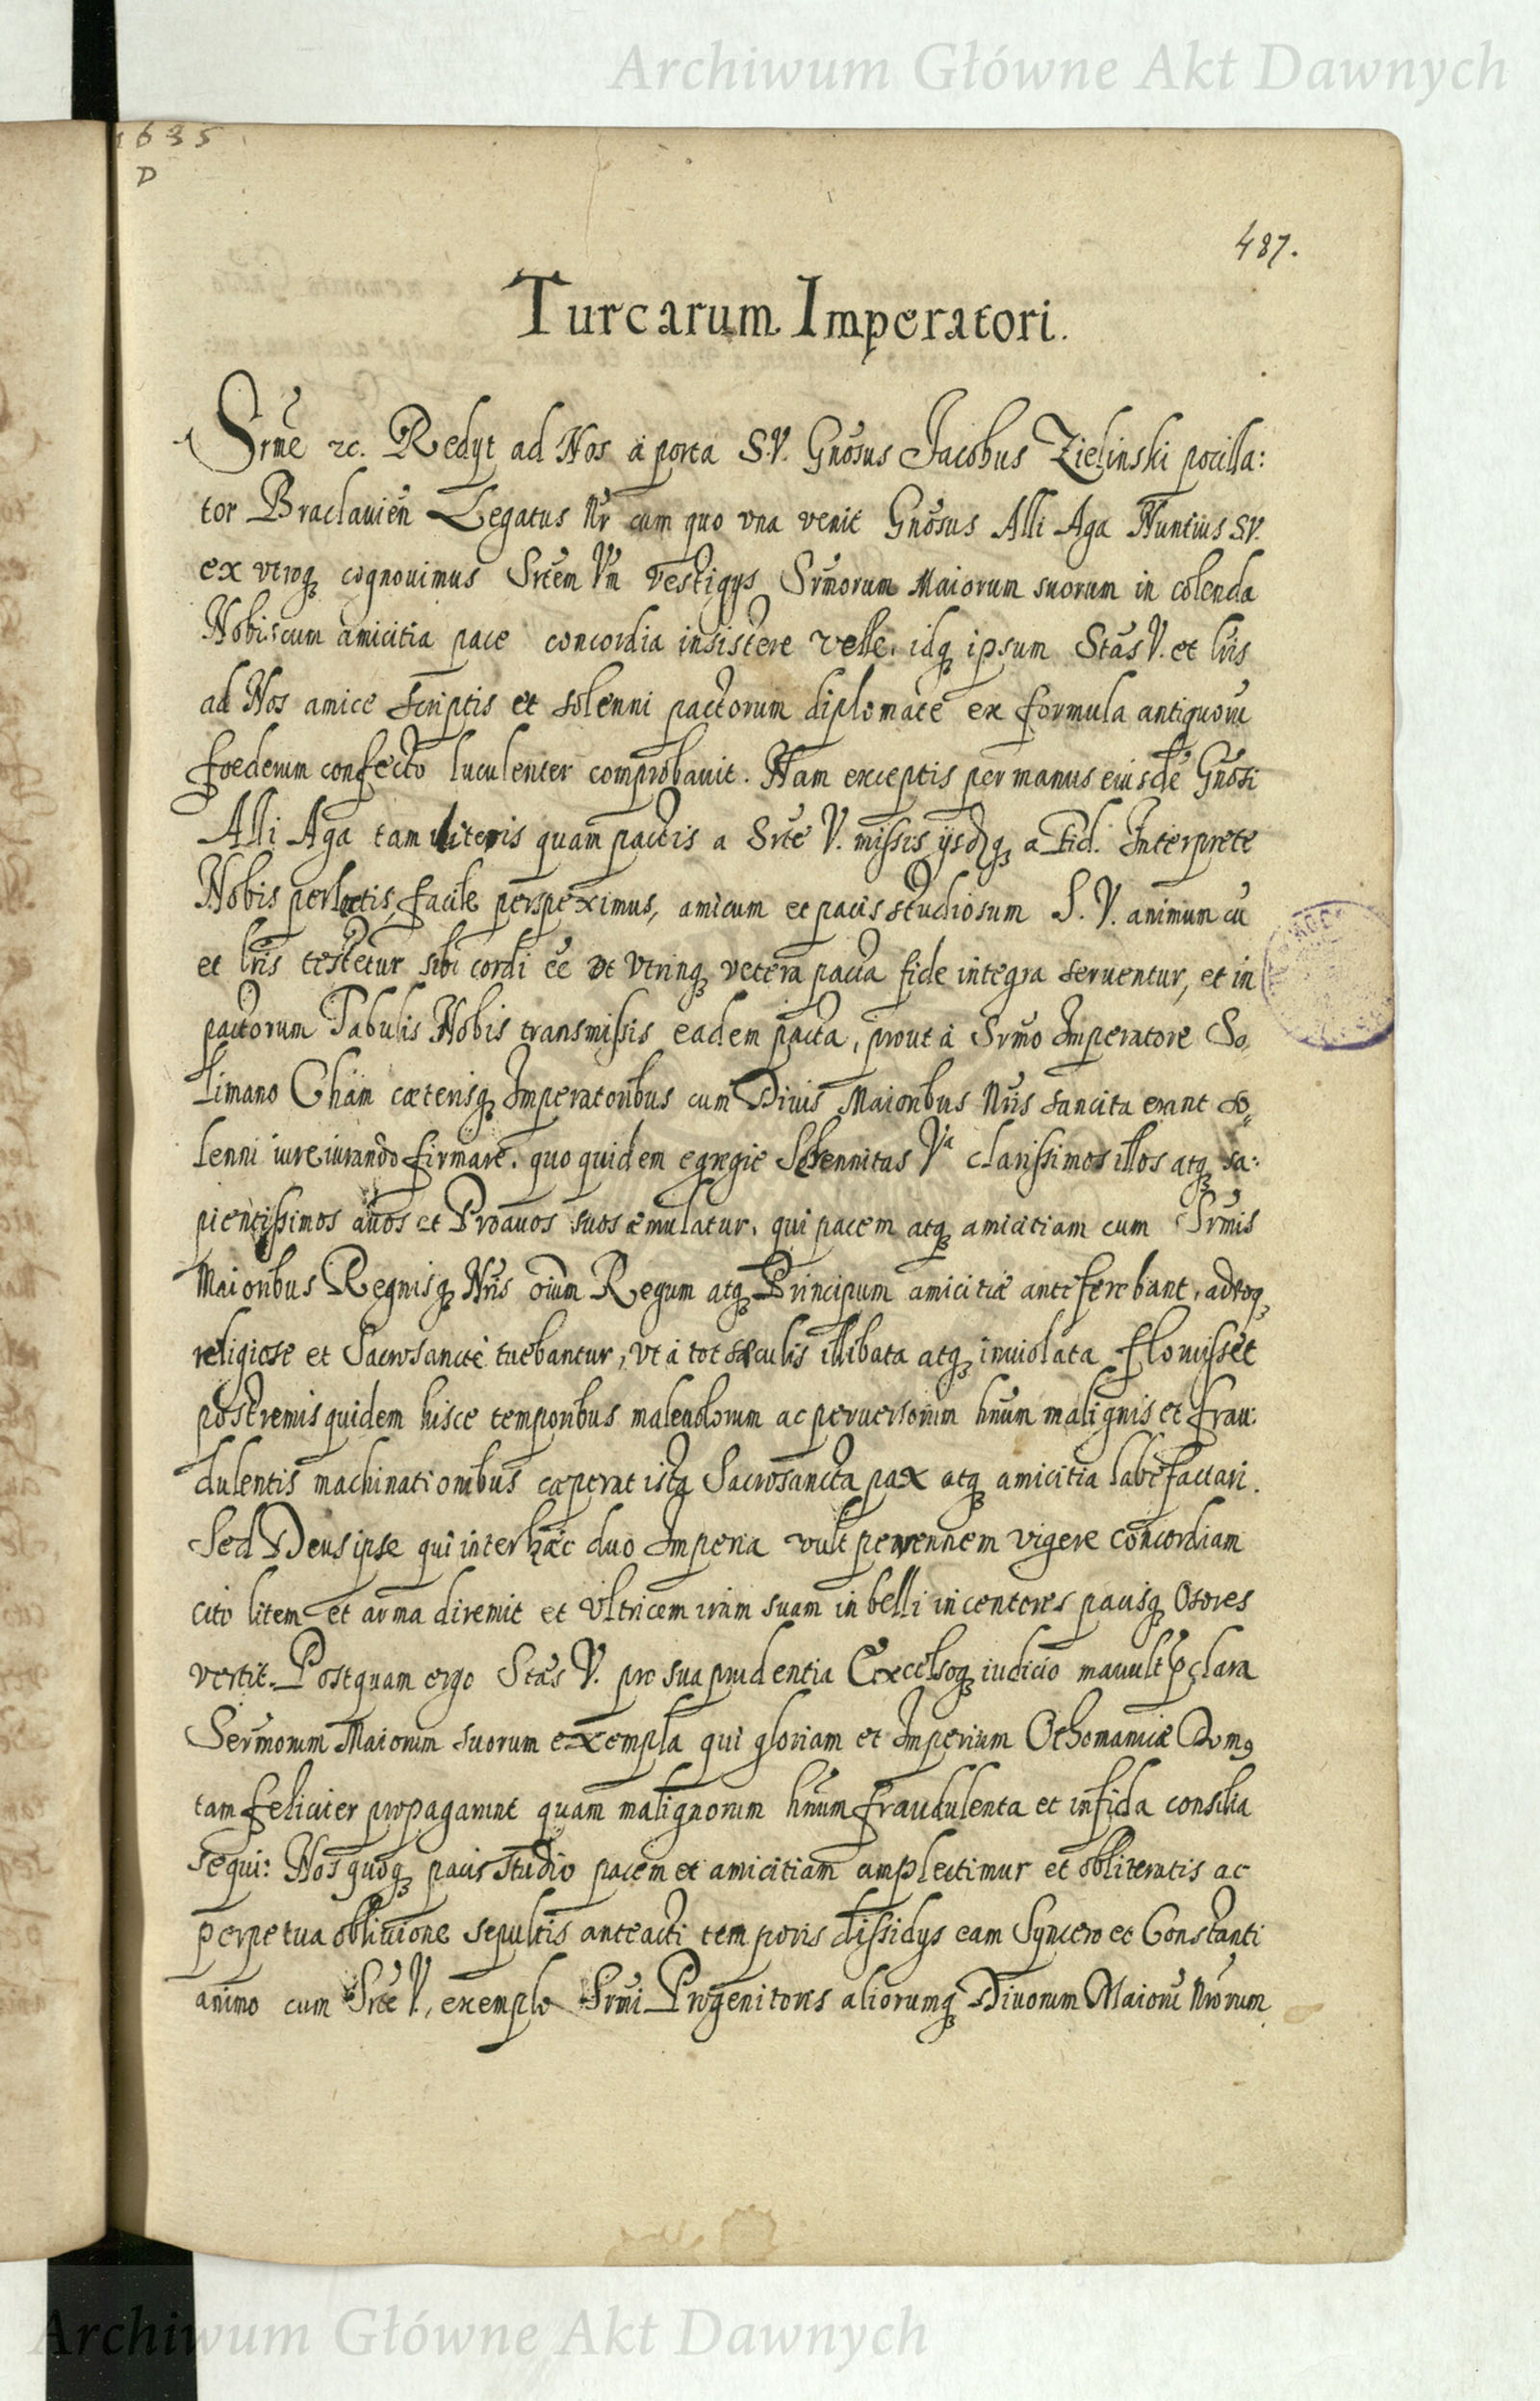 Archiwum Główne Akt Dawnych
1635
D
487.
Turcarum Imperatori.
Srme rc. Redyt ad Nos a porta S.V. Gnosus Jacobus Zielinski pocilla:
tor Braclauien Legatus Nr cum quo vna venit Gnosus Alli Aga Nuntius S.V.
ex vtroq cognouimus Srtem Vm vestigys Srmorum Maiorum suorum in colenda
Nobiscum amicitia pace concordia insistere velle, idq ipsum Stas V. et lris
ad Nos amice scriptis et solenni pactorum diplomate ex formula antiquoru
foederum confecto luculenter comprobauit. Nam exceptis per manus eiusde Gnosi
Alli Aga tam literis quam pactis a Srte V. missis ijsdq a Fid. Interprete
Nobis perlectis, facile perspeximus, amicum et pacis studiosum S. V. animum cu
et lris testetur sibi cordi ee vt vtrinq vetera pacta fide integra seruentur, et in
pactorum Tabulis Nobis transmissis eadem pacta, prout à Srmo Imperatore So,
limano Cham caeterisq Imperatoribus cum Diuis Maioribus Nris sancita erant so,
lenni iureiurando firmare. quo quidem egregie Solennitas Va clarissimos illos atq sa:
pientissimos auos et Proauos suos aemulatur, qui pacem atq amicitiam cum Srmis
Maioribus Regnisq Nris oium Regum atq Principum amicitiae anteferebant, adeoq
religiose et Sacrosancte tuebantur, vt à tot saeculis illibata atq inuiolata floruisset
postremis quidem hisce temporibus maleuolorum ac peruersorum hnum malignis et frau:
dulentis machinationibus caeperat ista Sacrosancta pax atq amicitia labefactari.
Sed Deus ipse qui inter haec duo Imperia vult perennem vigere concordiam
cito litem et arma diremit et vltricem iram suam in belli incentores pacisq Osores
vertit. Postquam ergo Stas V. pro sua prudentia Excelsoq iudicio mauult pclara
Sermorum Maiorum suorum exempla qui gloriam et Imperium Othomanicae Domq
tam feliciter propagarunt quam malignorum hnum fraudulenta et infida consilia
sequi: Nos quoq pacis studio pacem et amicitiam amplectimur et obliteratis ac
perpetua obliuione sepultis anteacti temporis dissidys eam Syncero et Constanti
animo cum Srte V. exemplo Srmi Progenitoris aliorumq Diuorum Maioru Nrorum
Archiwum Główne Akt Dawnych